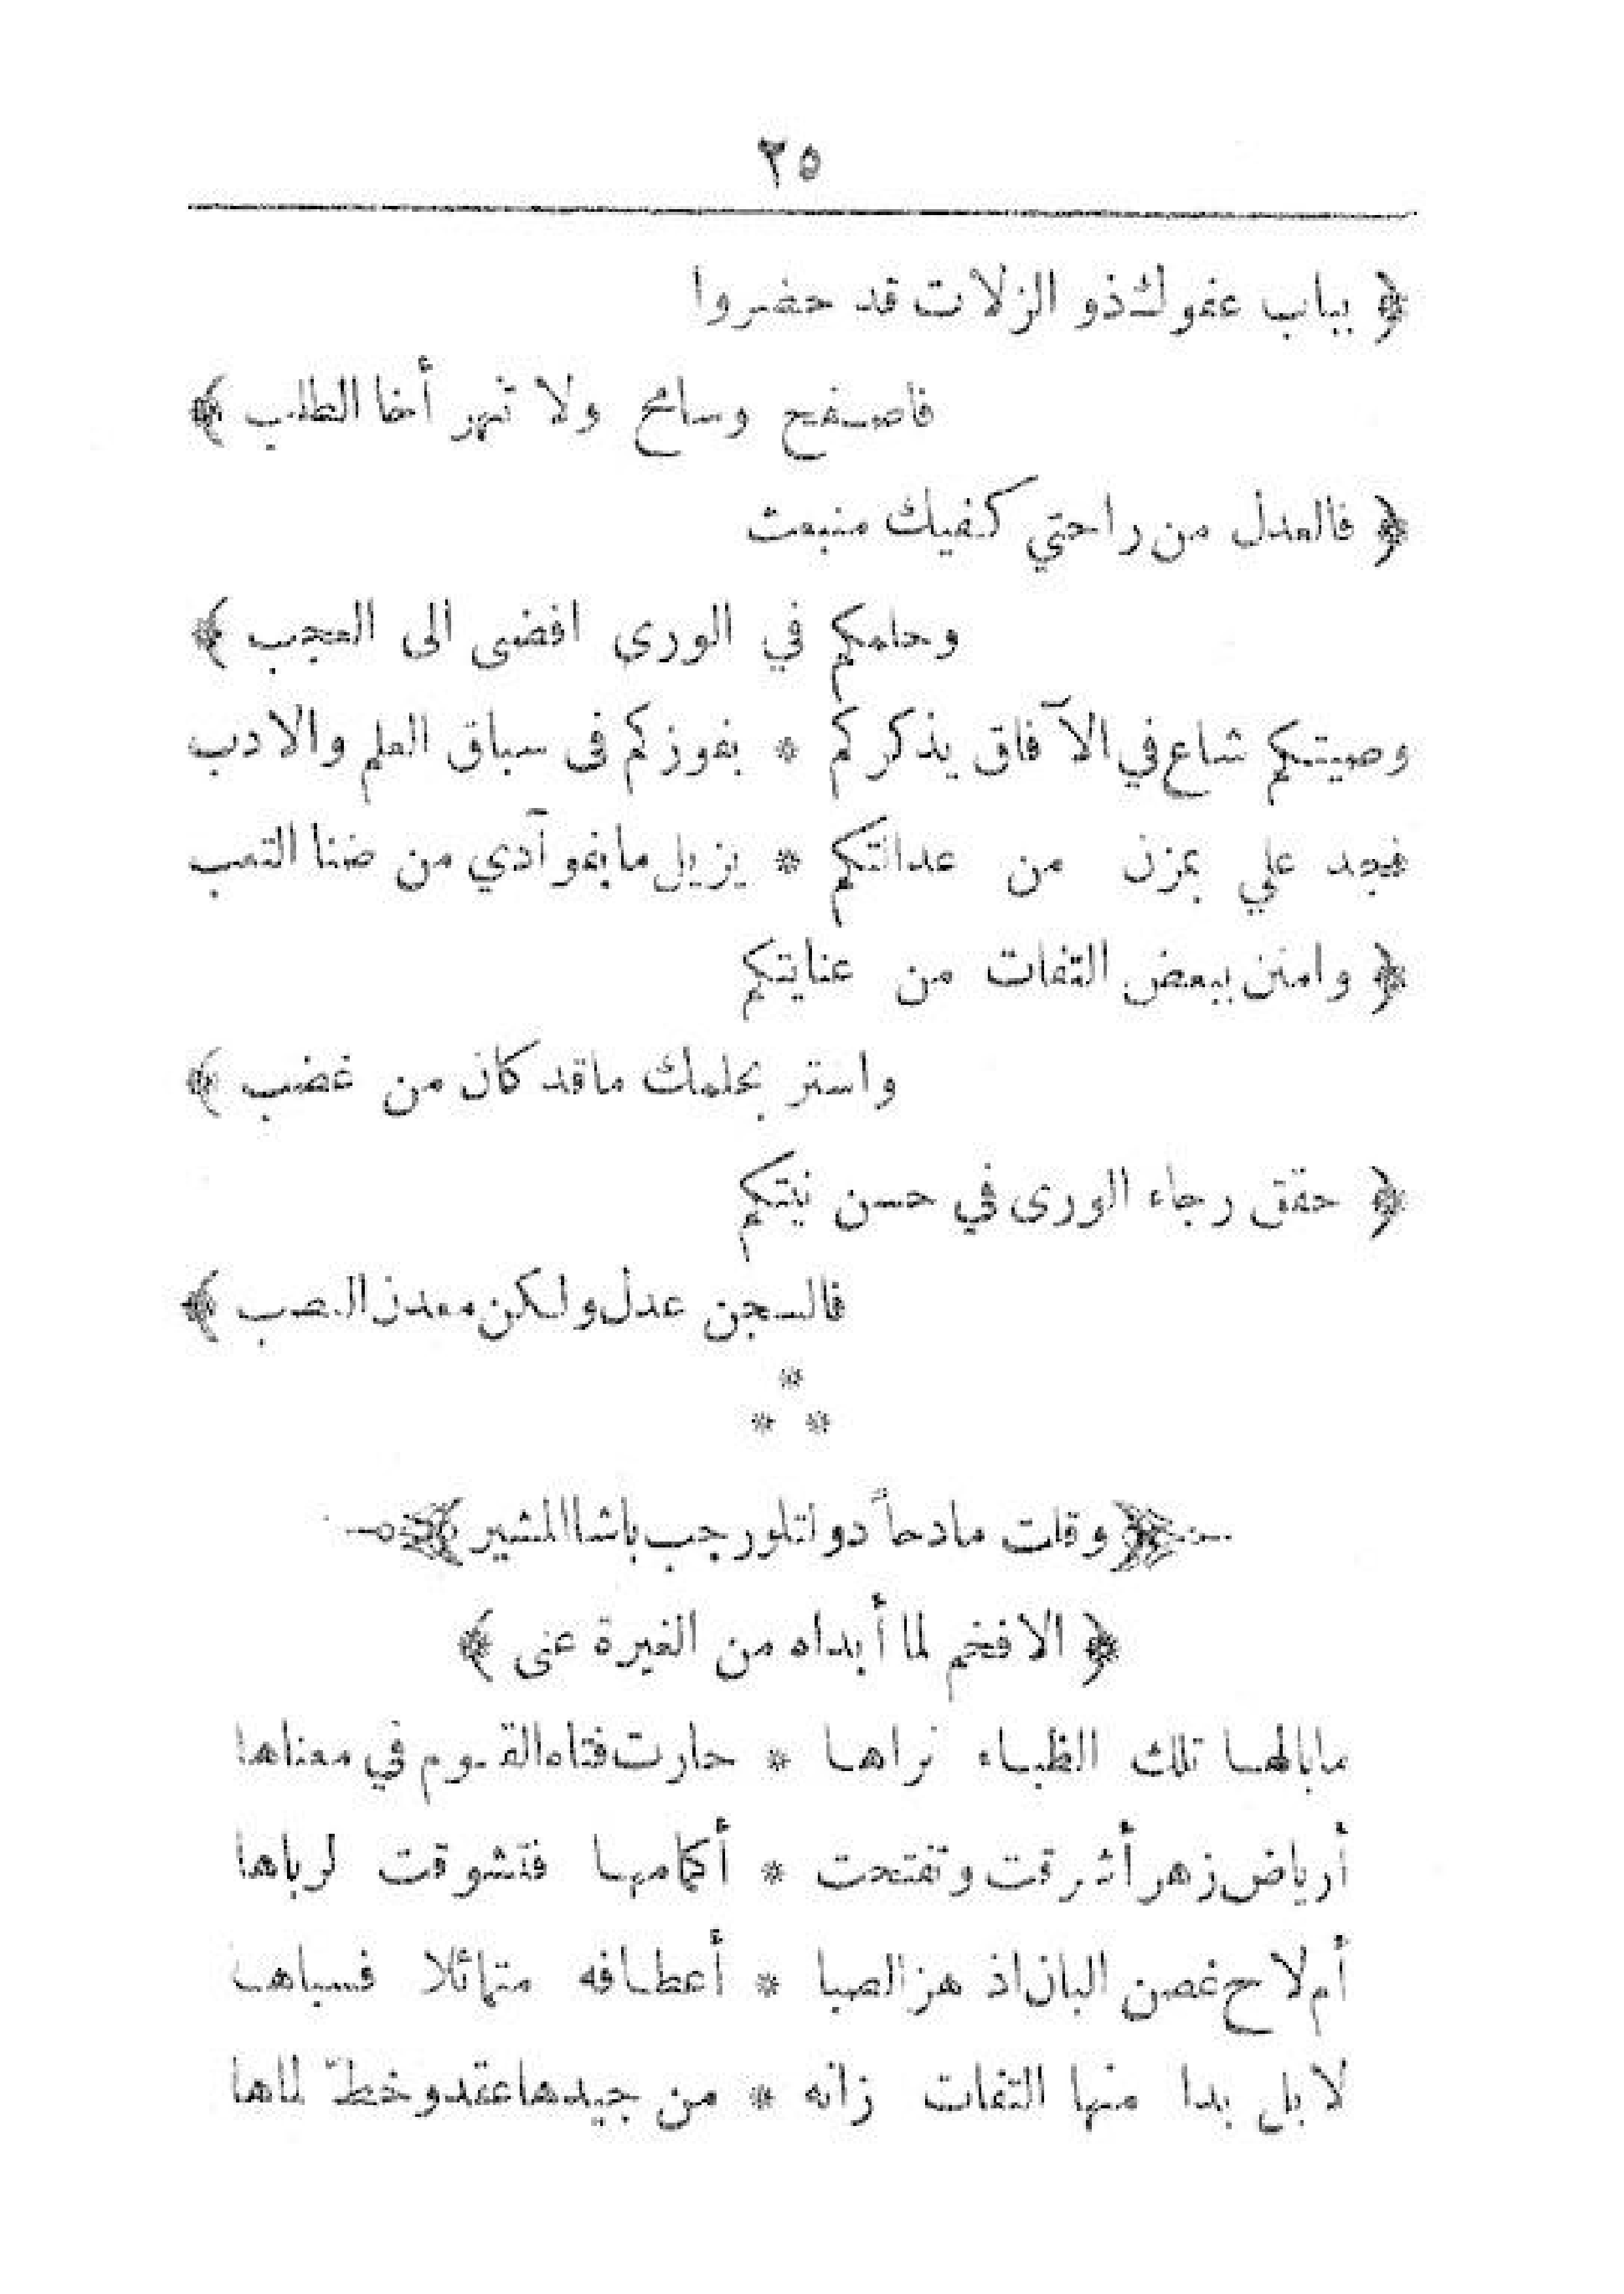 ٢٥
﴿ بباب عفوك ذو الزلات قد حضروا
فاصفح وسامح ولا تنهر أخا الطلب ﴾
﴿ فالعدل من راحتي كفيك منبعث
وحلمكم في الورى افضى الى العجب ﴾
وصيتكم شاع في الآفاق يذكركم * بفوزكم فى سباق العلم والادب
فجد علي بمزن من عدالتكم * يزيل ما بفوآدي من ضنا التعب
﴿ وامنن ببعض التفات من عنايتكم
واستر بحلمك ماقد كان من غضب ﴾
﴿ حقق رجاء الورى في حسن نيتكم
فالسجن عدل ولكن معدن النصب ﴾
*
* *
﴿ وقلت مادحاً دولتلو رجب باشا المشير ﴾
﴿ الافخم لما أبداه من الغيرة عنى ﴾
مابالها تلك الظباء نراها * حارت فتاه القوم في معناها
أرياض زهر أشرقت وتفتحت * أكمامها فتشوقت لرباها
أم لاح غصن البان اذ هز الصبا * أعطافه متمائلا فسباها
لا بل بدا منها التفات زانه * من جيدها عقد وخطّ لماها